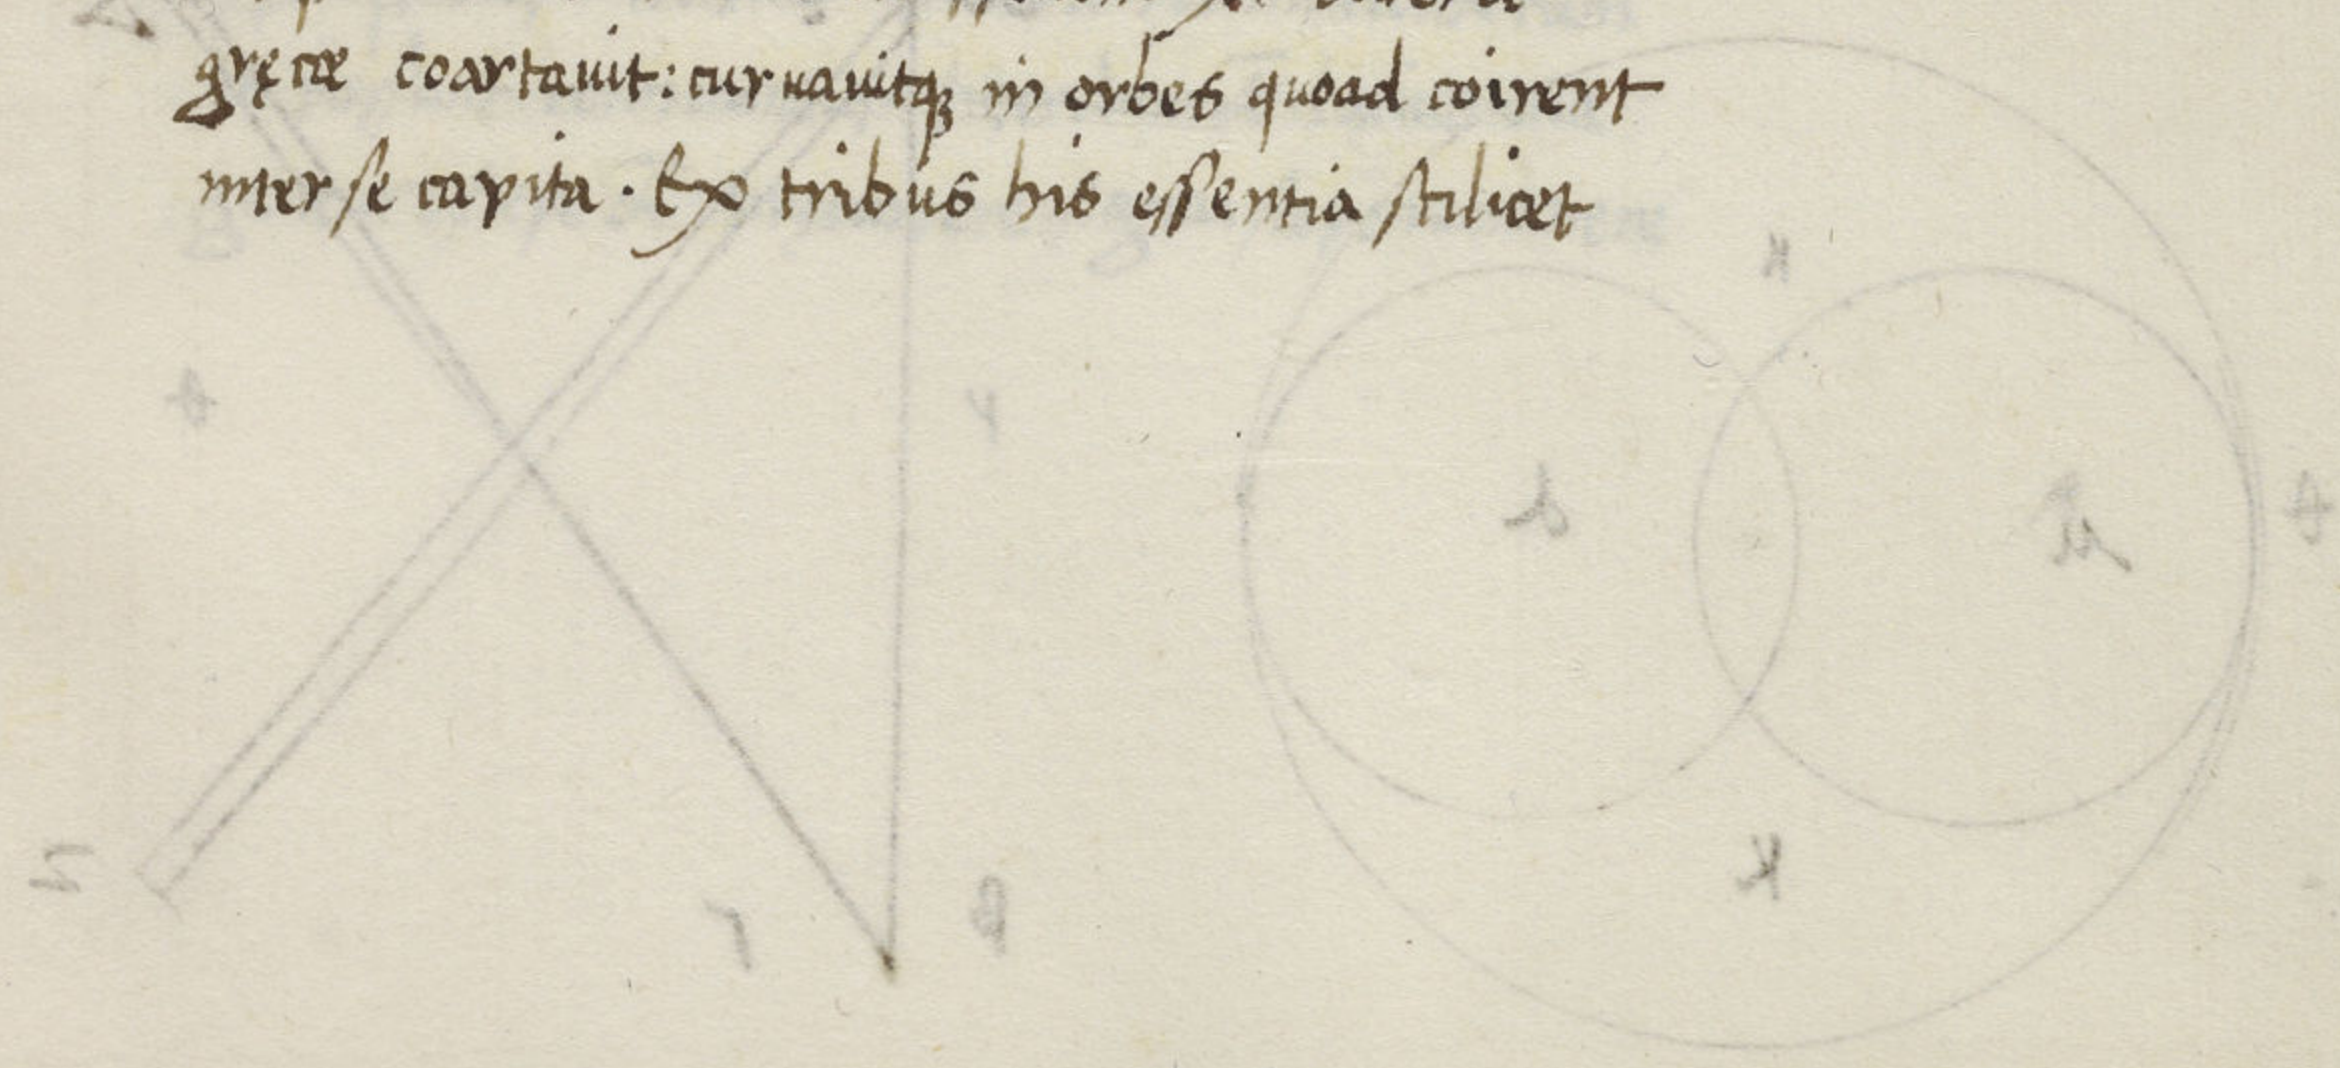 gręcæ coartauit: curuauitqꝫ in orbes quoad coirent
inter se capita. Ex tribus his essentia scilicet